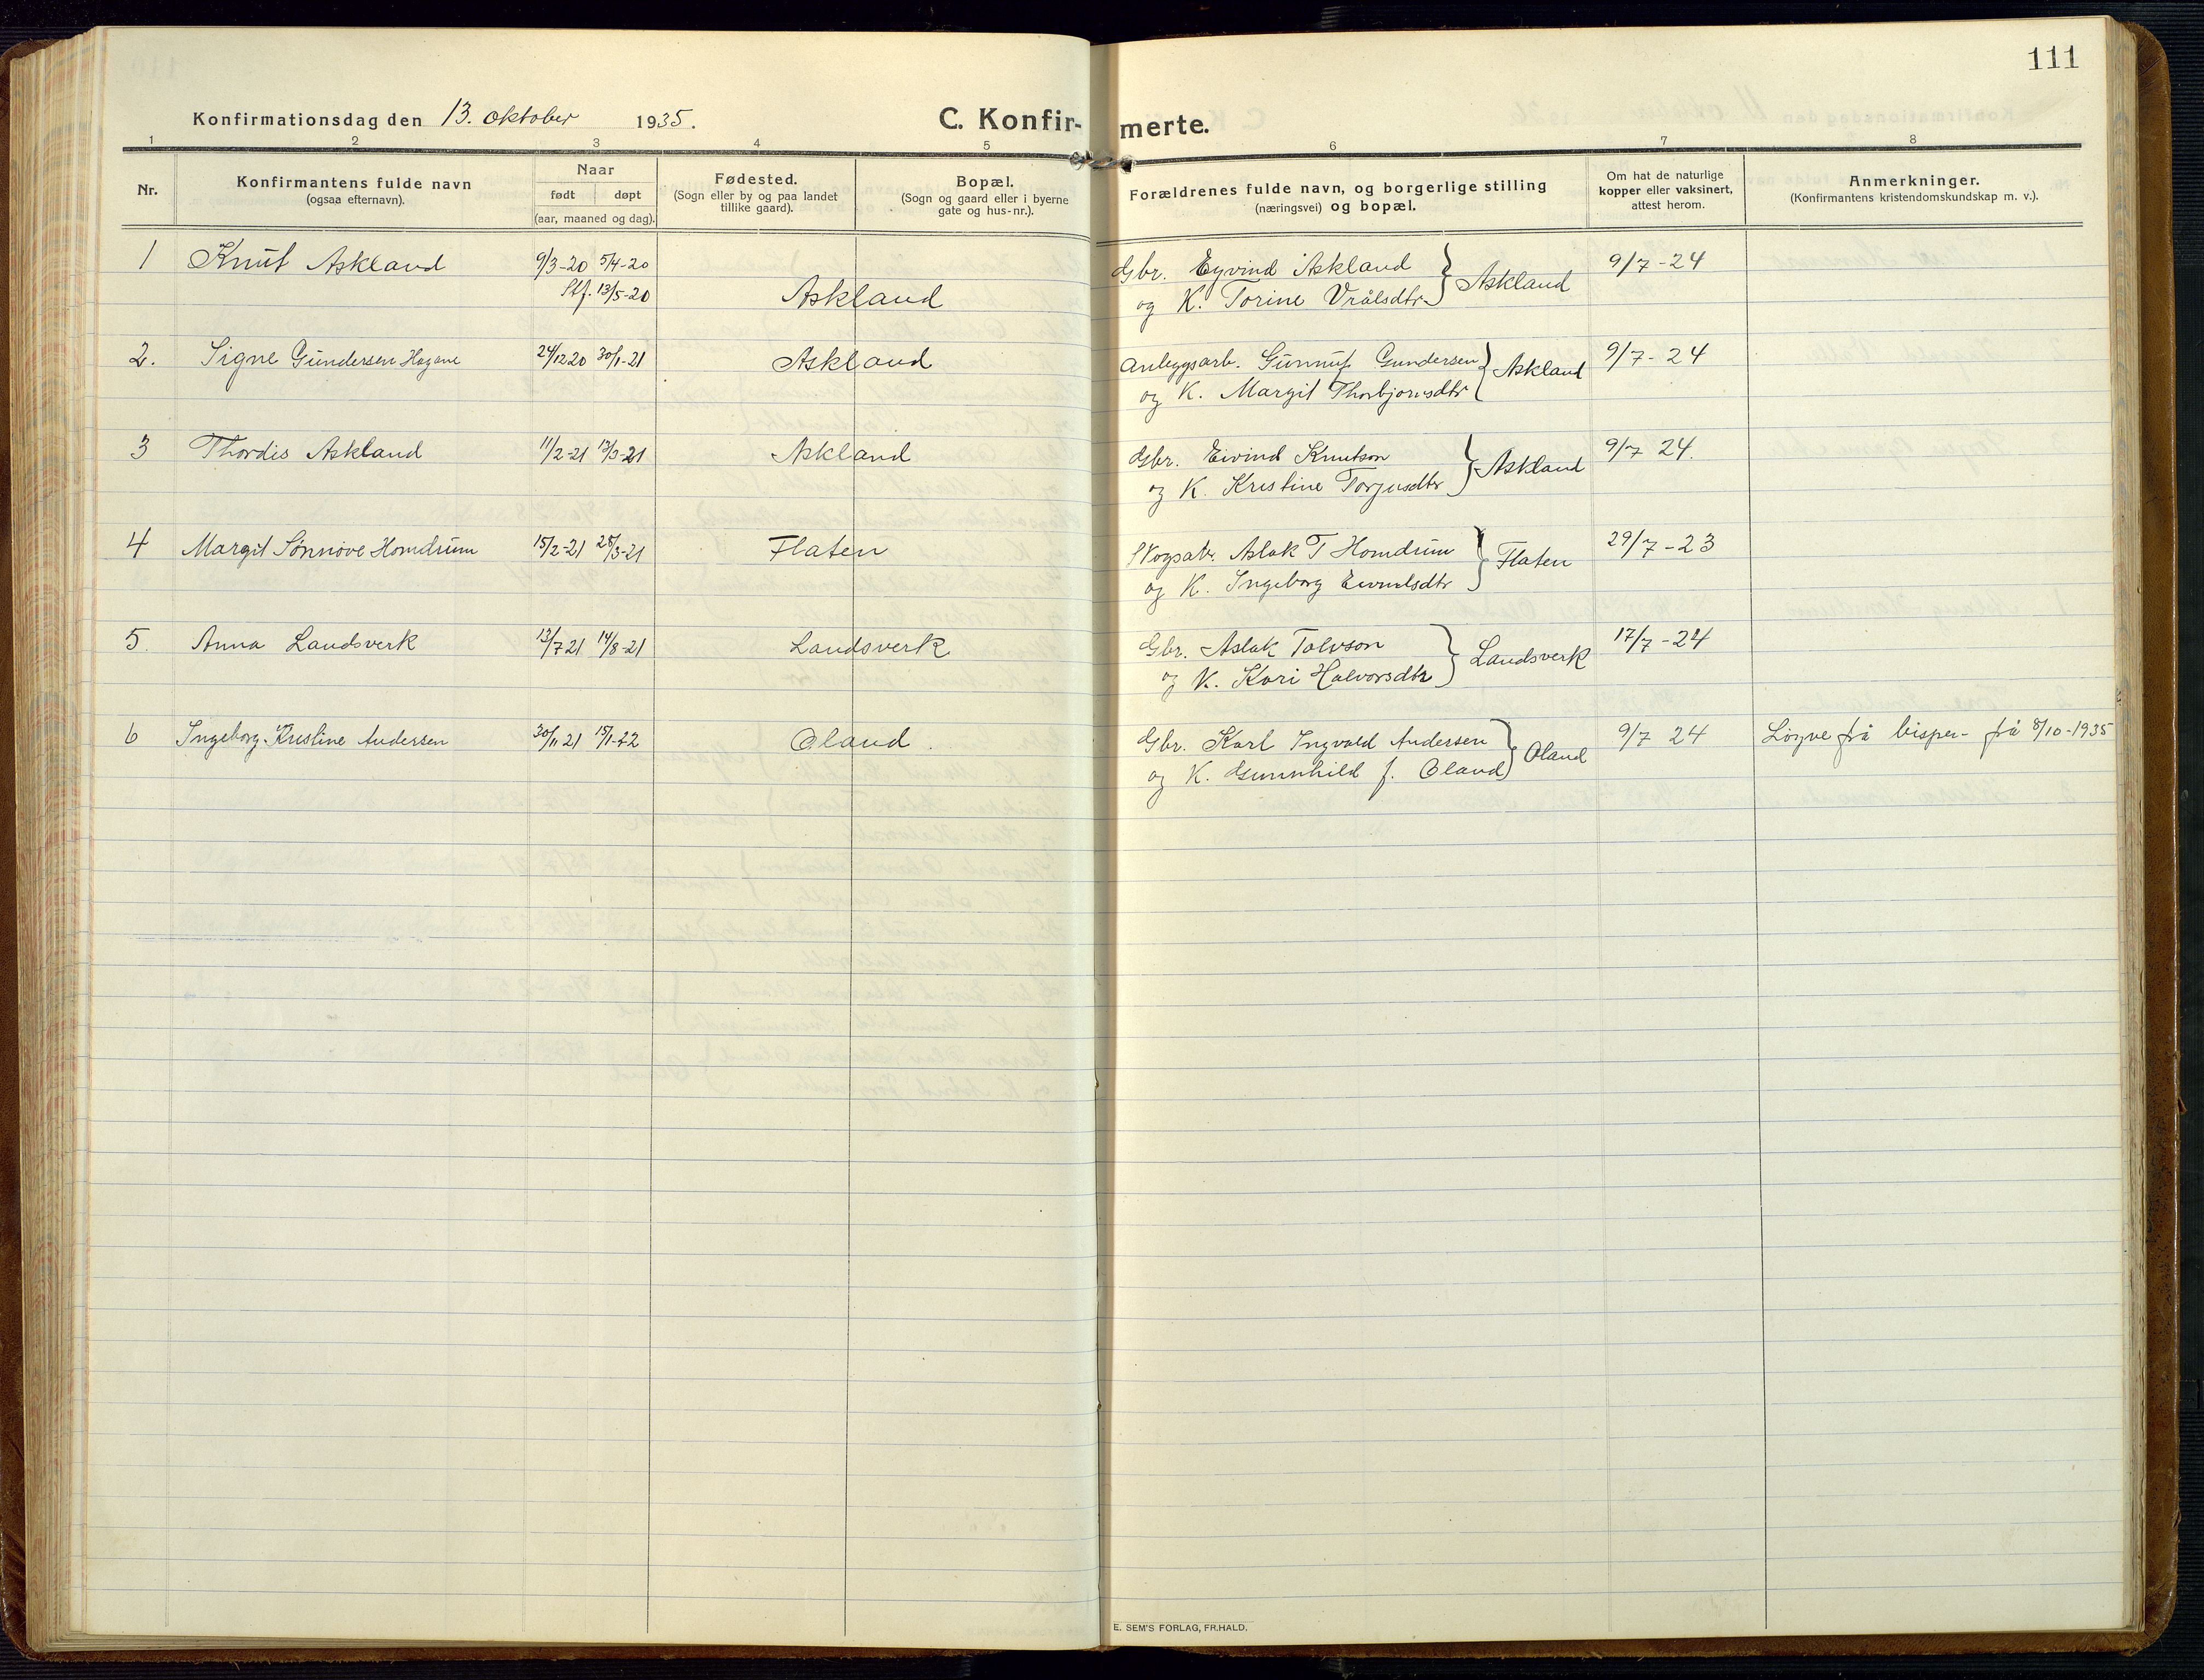 111
Konfirmationsdag den 13. oktober 1935.
C. Konfir-merte.
1 2 3 4 5 6 7 8
Nr.
Konfirmantens fulde navn
(ogsaa efternavn).
Naar
født døpt
(aar, maaned og dag).
Fødested.
(Sogn eller by og paa landet
tillike gaard).
Bopæl.
(Sogn og gaard eller i byerne
gate og hus-nr.).
Forældrenes fulde navn, og borgerlige stilling
(næringsvei) og bopæl.
Om hat de naturlige
kopper eller vaksinert,
attest herom.
Anmerkninger.
(Konfirmantens kristendomskundskap m. v.).
1 Knut Askland 9/3-20 5/4-20 Gbr. Eyvind Askland } Askland 9/7-24
Stf. 13/5-20 Askland og K. Torine Vrålsdtr
2. Signe Gundersen Hagane 24/12 20 30/1-21 Askland Anleggsarb. Gunnuf Gundersen } Askland 9/7-24
og K. Margit Thorbjørnsdtr
3 Thordis Askland 11/2-21 13/3-21 Askland Gbr. Eivind Knutson } Askland 9/7 24.
og K. Kristine Torjusdtr
4 Margit Sønnøve Homdrum 15/2-21 28/3-21 Flaten Skogsarb. Aslak T Homdrum } Flaten 29/7-23
og K. Ingeborg Eivindsdtr
5. Anna Landsverk 13/7 21 14/8-21 Landsverk Gbr. Aslak Talvson } Landsverk 17/7-24
og K. Kari Halvorsdtr
6 Ingeborg Kristine Andersen 30/11 21 15/1-22 Øland. Gbr. Karl Ingvald Andersen } Øland 9/7 24 Løyve frå bispen frå 8/10-1935
og K. Gunnhild f. Øland
E. SEM'S FORLAG, FR.HALD.